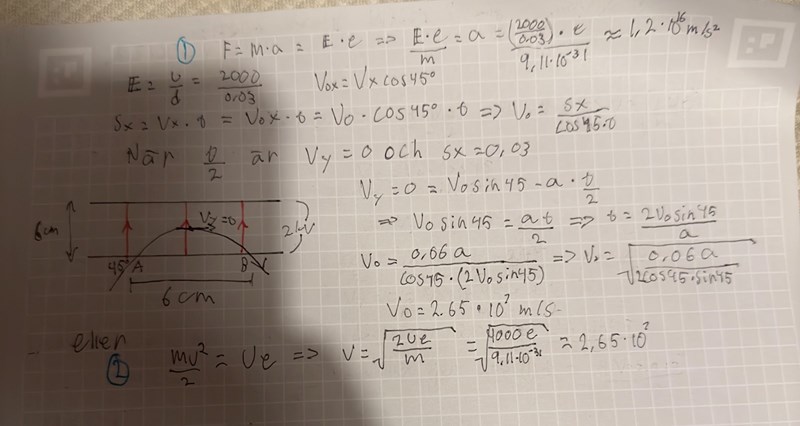 ① F = m·a = E·e => E·e/m = a = (2000/0.03)·e / 9,11·10^-31 ≈ 1,2·10^16 m/s²
E = U/d = 2000/0.03   V0x = Vx cos45°
Sx = Vx·t = V0x·t = V0·cos45°·t => V0 = Sx/cos45·t
När t/2 är Vy = 0 och sx = 0,03
Vy = 0 = V0 sin45 - a·t/2
=> V0 sin45 = at/2 => t = 2V0 sin45/a
V0 = 0,06a/cos45·(2V0 sin45) => V0 = √(0,06a/2cos45·sin45)
V0 = 2.65·10^7 m/s
6cm
Vy=0
2kV
45° A
B
6cm
eller
② mv²/2 = Ue => V = √(2Ue/m) = √(4000e/9,11·10^-31) = 2,65·10^7